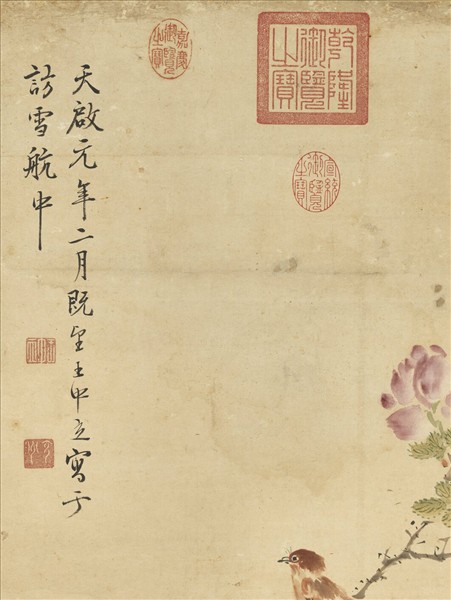 天啟元年二月既望王中立寫于
訪雪航中
乾隆御覽之寶
嘉慶御覽之寶
宣統御覽之寶